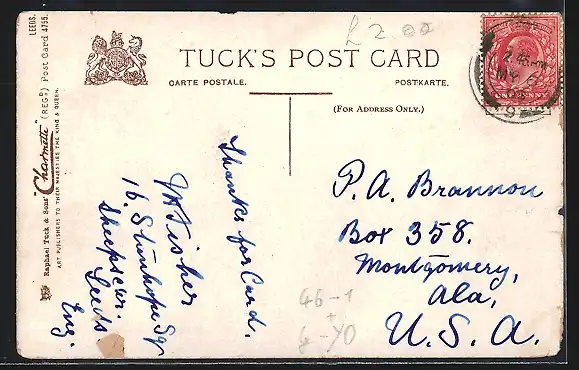 £2.00
TUCK'S POST CARD
CARTE POSTALE.
POSTKARTE.
(FOR ADDRESS ONLY.)
LEEDS.
Raphael Tuck & Sons' "Charmette" (REGD) Post Card 4755.
ART PUBLISHERS TO THEIR MAJESTIES THE KING & QUEEN.
Thanks for Card.
Fisher
16. Stanhope Sq
Leeds
Eng.
P. A. Brannon
Box 358.
Montgomery,
Ala,
U. S. A.
46-1
+